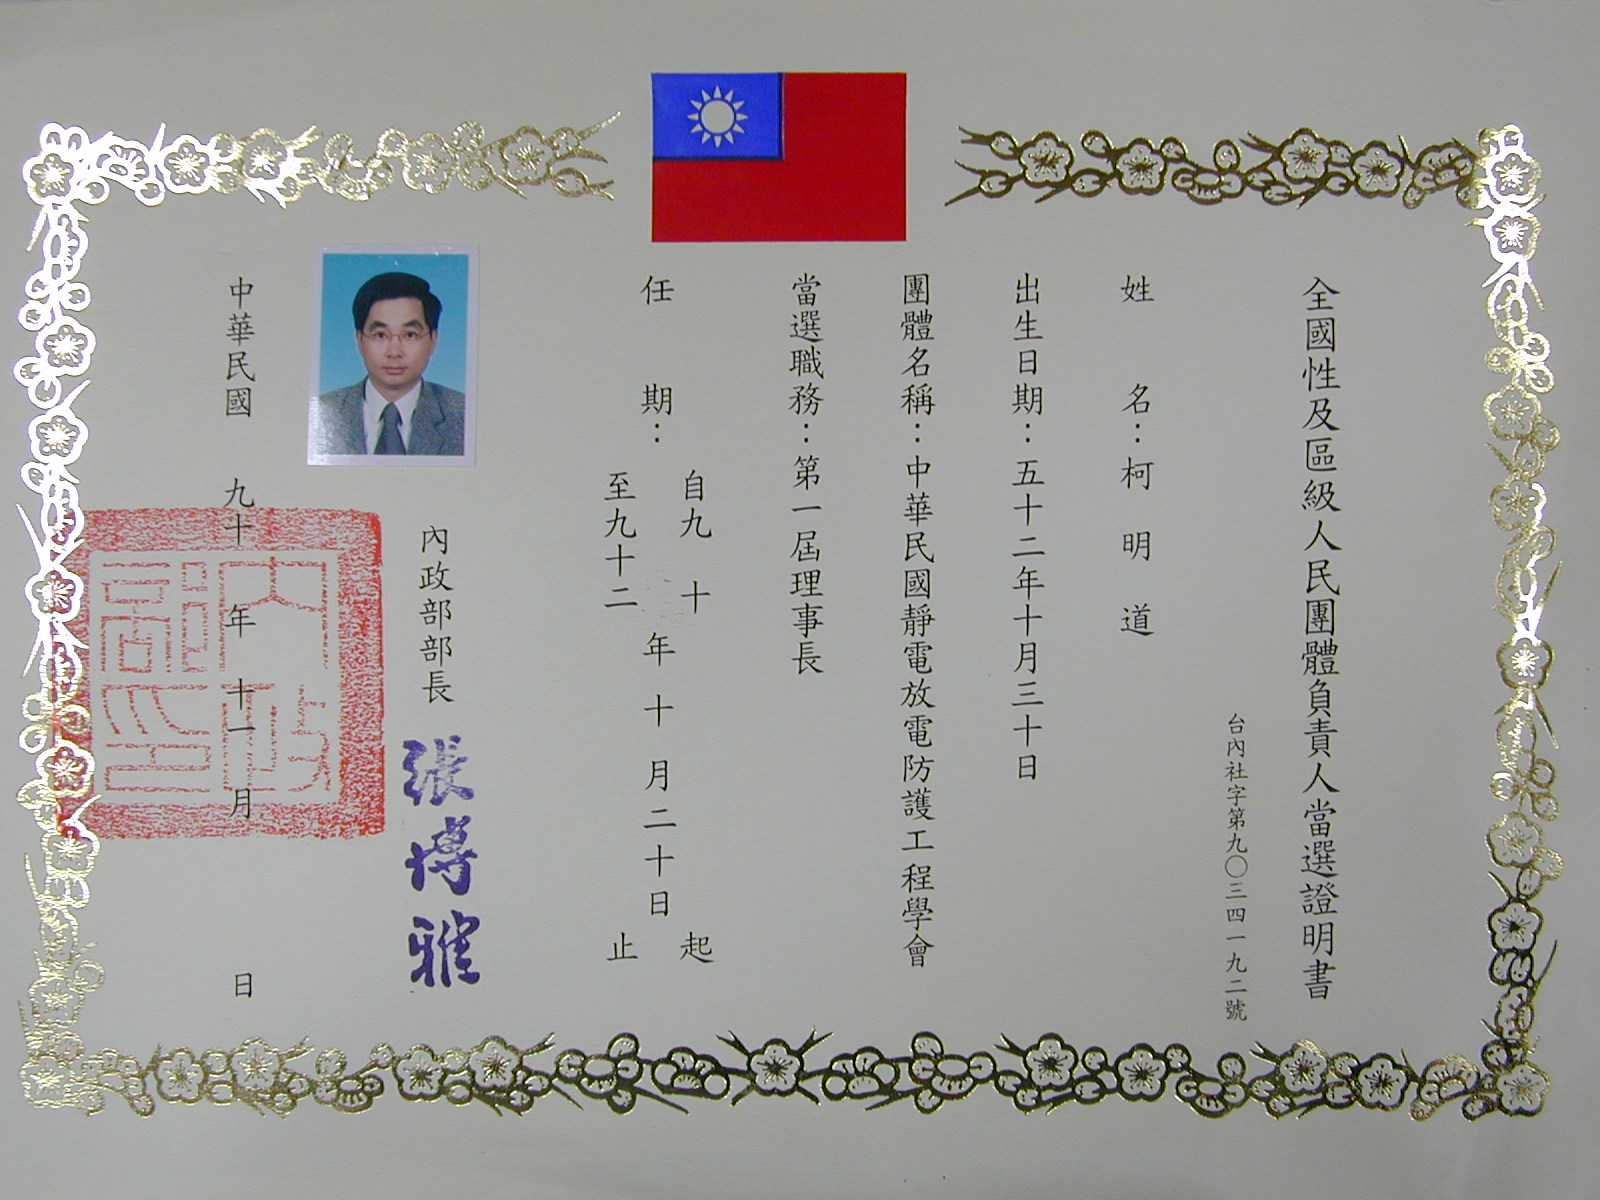 全國性及區級人民團體負責人當選證明書
台內社字第九〇三四一九二號
姓名：柯明道
出生日期：五十二年十月三十日
團體名稱：中華民國靜電放電防護工程學會
當選職務：第一屆理事長
任期：
自九十
起
年十月二十日
至九十二
止
內政部部長
張博雅
中華民國九十年十一月日
內政部印